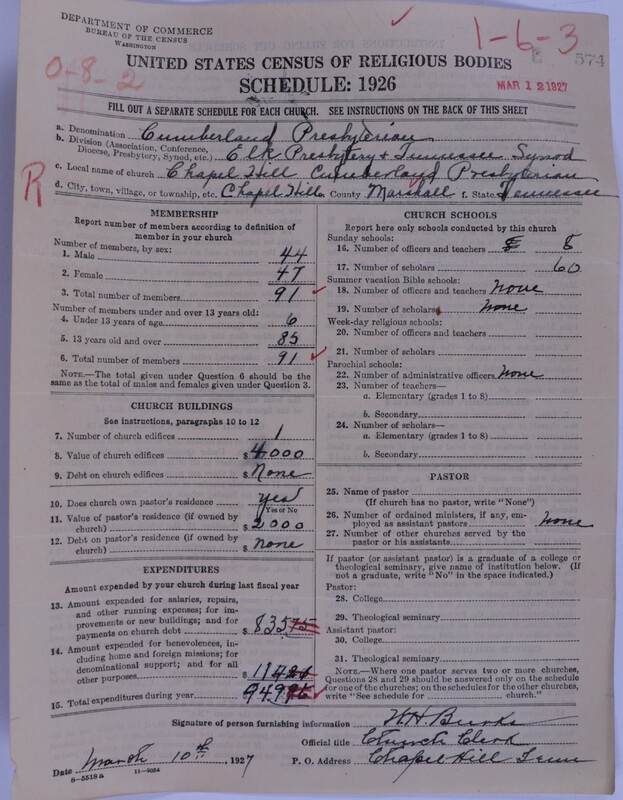 DEPARTMENT OF COMMERCE
BUREAU OF THE CENSUS
WASHINGTON
1-6-3
574
0-8-2
MAR 12 1927
UNITED STATES CENSUS OF RELIGIOUS BODIES
SCHEDULE: 1926
FILL OUT A SEPARATE SCHEDULE FOR EACH CHURCH. SEE INSTRUCTIONS ON THE BACK OF THIS SHEET
a. Denomination Cumberland Presbyterian
b. Division (Association, Conference, Diocese, Presbytery, Synod, etc.) Elk Presbytery & Tennessee Synod
c. Local name of church Chapel Hill Cumberland Presbyterian
R
d. City, town, village, or township, etc. Chapel Hill e. County Marshall f. State Tennessee
MEMBERSHIP
Report number of members according to definition of
member in your church
Number of members, by sex:
1. Male 44
2. Female 47
3. Total number of members 91
Number of members under and over 13 years old:
4. Under 13 years of age 6
5. 13 years old and over 85
6. Total number of members 91
NOTE.—The total given under Question 6 should be
the same as the total of males and females given under Question 3.
CHURCH BUILDINGS
See instructions, paragraphs 10 to 12
7. Number of church edifices 1
8. Value of church edifices $ 4000
9. Debt on church edifices $ None
10. Does church own pastor's residence yes
Yes or No
11. Value of pastor's residence (if owned by
church) $ 2000
12. Debt on pastor's residence (if owned by
church) $ none
EXPENDITURES
Amount expended by your church during last fiscal year
13. Amount expended for salaries, repairs,
and other running expenses; for im-
provements or new buildings; and for
payments on church debt $ 835 75
14. Amount expended for benevolences, in-
cluding home and foreign missions; for
denominational support; and for all
other purposes 114
15. Total expenditures during year 949
CHURCH SCHOOLS
Report here only schools conducted by this church
Sunday schools:
16. Number of officers and teachers 8
17. Number of scholars 60
Summer vacation Bible schools:
18. Number of officers and teachers none
19. Number of scholars none
Week-day religious schools:
20. Number of officers and teachers
21. Number of scholars
Parochial schools:
22. Number of administrative officers none
23. Number of teachers—
a. Elementary (grades 1 to 8)
b. Secondary
24. Number of scholars—
a. Elementary (grades 1 to 8)
b. Secondary
PASTOR
25. Name of pastor
(If church has no pastor, write "None")
26. Number of ordained ministers, if any, em-
ployed as assistant pastors none
27. Number of other churches served by the
pastor or his assistants
If pastor (or assistant pastor) is a graduate of a college or
theological seminary, give name of institution below. (If
not a graduate, write "No" in the space indicated.)
Pastor:
28. College
29. Theological seminary
Assistant pastor:
30. College
31. Theological seminary
NOTE.—Where one pastor serves two or more churches,
Questions 28 and 29 should be answered only on the schedule
for one of the churches; on the schedules for the other churches,
write "See schedule for church."
Signature of person furnishing information H. Burks
Official title Church Clerk
Date March 10th, 1927 P. O. Address Chapel Hill Tenn
8-5518 a 11-9034